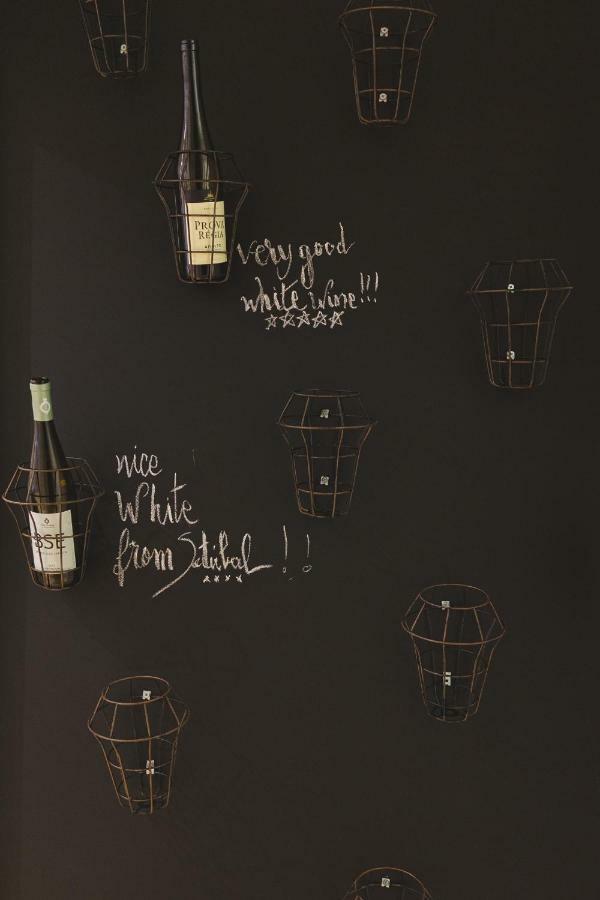 PROVA
RÉGIA
very good
white wine!!!
BSE
nice
White
from Setúbal!!